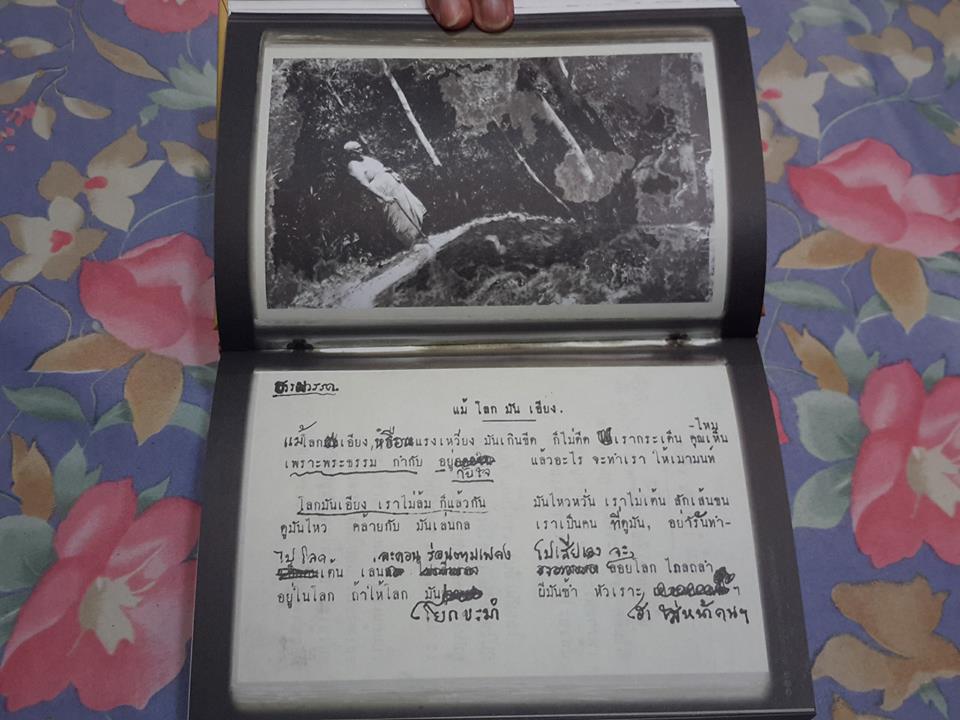 แม้ โลก มัน เอียง.
แม้โลก เอียง, แรงเหวี่ยง มันเกินขีด ก็ไม่ดีด เรากระเด็น คุณเห็นไหม
เพราะพระธรรม กำกับ อยู่กับใจ แล้วอะไร จะทำเรา ให้เมามนท
โลกมันเอียง เราไม่ล้ม ก็แล้วกัน มันไหวหวั่น เราไม่เต้น สักเส้นขน
ดูมันไหว คล้ายกับ มันเล่นกล เราเป็นคน ที่ดูมัน,
ไปเสียเอง จะ
เต้น เล่น ย้อยโลก
อยู่ในโลก ถ้าให้โลก มันโยกขะมำ ผีมันซ้ำ หัวเราะ ฮา ใส่หน้าคนฯ